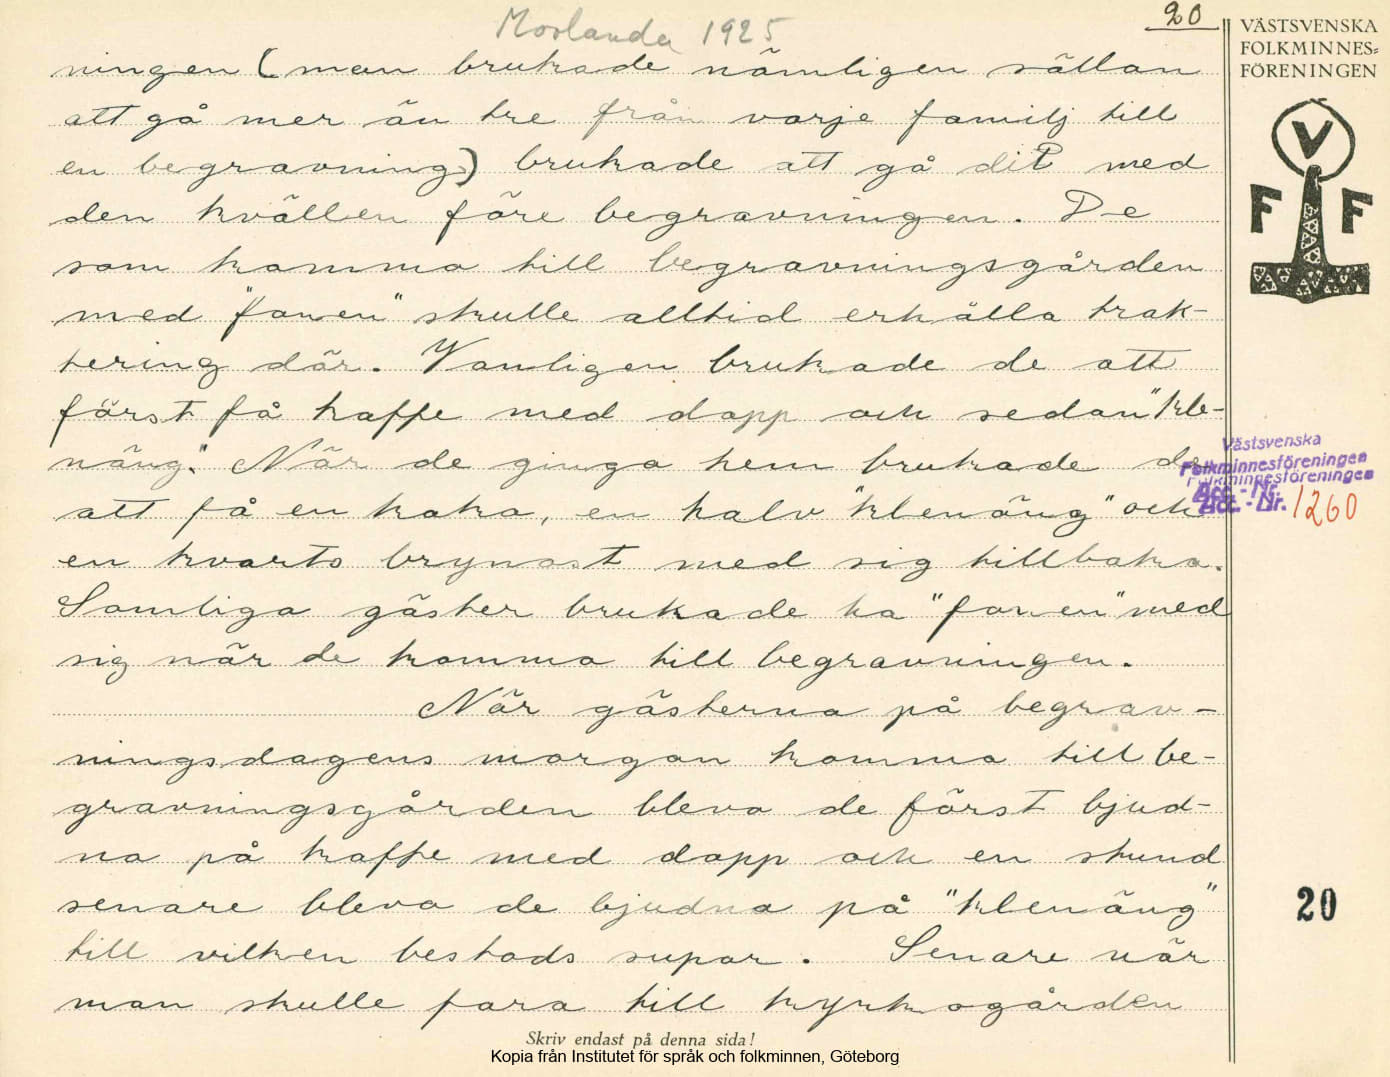 Morlanda 1925
20
VÄSTSVENSKA
FOLKMINNES=
FÖRENINGEN
V
F F
ningen (man brukade nämligen sällan
att gå mer än tre från varje familj till
en begravning) brukade att gå dit med
den kvällen före begravningen. De
som komma till begravningsgården
med "fonen" skulle alltid erhålla trak-
tering där. Vanligen brukade de att
först få kaffe med dopp och sedan "kle-
näng". När de gingo hem brukade de
att få en kaka, en halv "klenäng" och
en kvarts brynost med sig tillbaka.
Somliga gäster brukade ha "fonen" med
sig när de komma till begravningen.
När gästerna på begrav-
ningsdagens morgon komma till be-
gravningsgården bleva de först bjud-
na på kaffe med dopp och en stund
senare bleva de bjudna på "klenäng"
till vilken bestods supar. Senare när
man skulle fara till kyrkogården
Västsvenska
Folkminnesföreningen
Folkminnesföreningen
Acc.-Nr.
Acc.-Nr. 1260
20
Skriv endast på denna sida!
Kopia från Institutet för språk och folkminnen, Göteborg